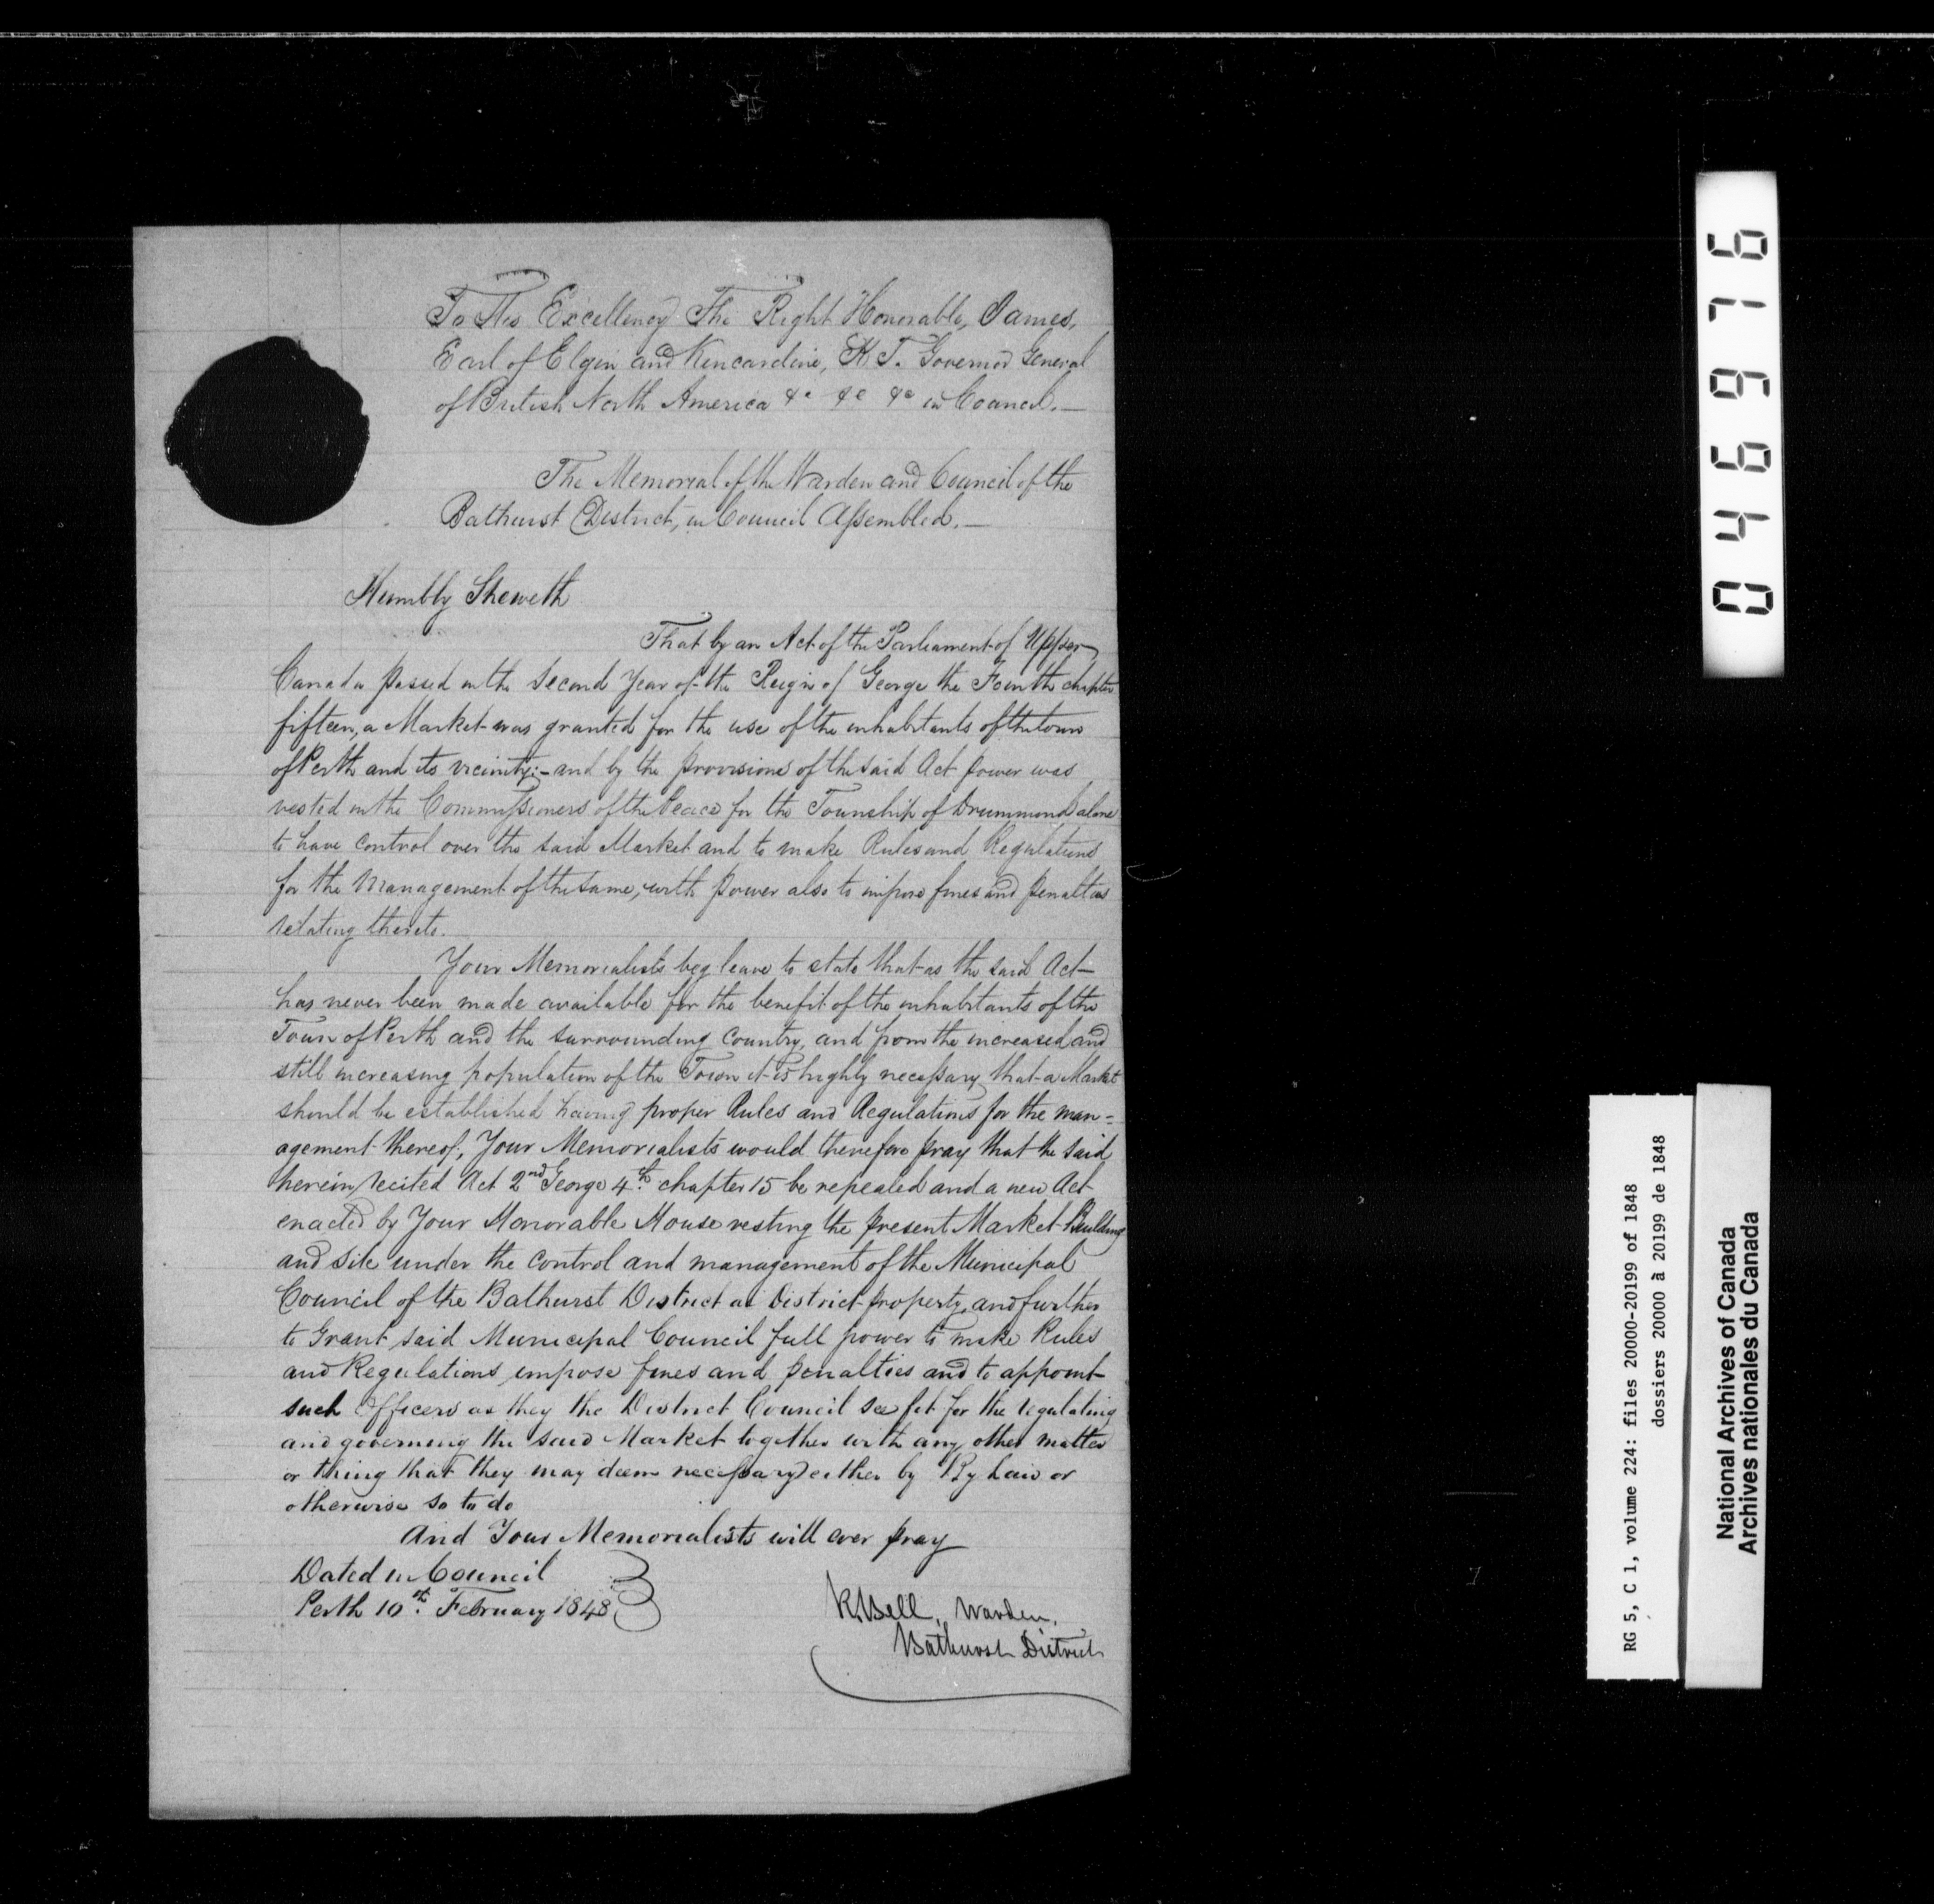 To His Excellency The Right Honorable, James,
Earl of Elgin and Kincardine, K T. Governor General
of British North America &c &c &c in Council.—
The Memorial of the Warden and Council of the
Bathurst District, in Council Assembled.—
Humbly Sheweth
That by an Act of the Parliament of Upper
Canada passed in the Second Year of the Reign of George the Fourth chapter
fifteen, a Market was granted for the use of the inhabitants of the town
of Perth and its vicinity:- and by the provisions of the said Act power was
vested in the Commissioners of the Peace for the Township of Drummond alone
to have control over the said Market and to make Rules and Regulations
for the Management of the same, with power also to impose fines and penalties
relating thereto.
Your Memorialists beg leave to state that as the said Act
has never been made available for the benefit of the inhabitants of the
Town of Perth and the surrounding Country, and from the increased and
still increasing population of the Town it is highly necessary that a Market
should be established having proper Rules and Regulations for the man=
agement thereof, Your Memorialists would therefore pray that the said
herein recited Act 2nd George 4th chapter 15 be repealed and a new Act
enacted by Your Honorable House vesting the present Market Building
and site under the control and management of the Municipal
Council of the Bathurst District as District property, and further
to Grant said Municipal Council full power to make Rules
and Regulations, impose fines and penalties and to appoint
such Officers as they the District Council see fit for the regulating
and governing the said Market together with any other matter
or thing that they may deem necessary either by By Law or
otherwise so to do
And Your Memorialists will ever pray
Dated in Council
Perth 10th February 1848
R. Bell, Warden.
Bathurst District
046976
RG 5, C 1, volume 224: files 20000-20199 of 1848
dossiers 20000 à 20199 de 1848
National Archives of Canada
Archives nationales du Canada